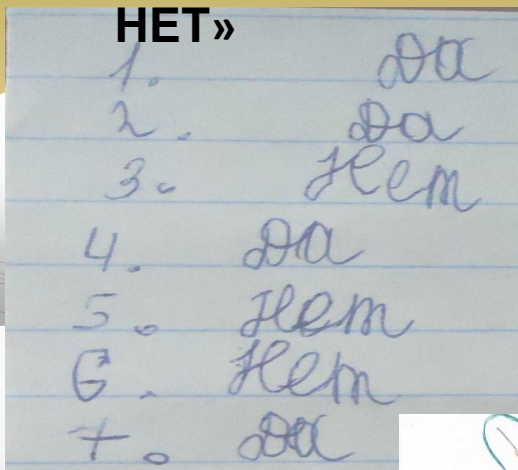 НЕТ»
1. Да
2. Да
3. Нет
4. Да
5. Нет
6. Нет
7. Да